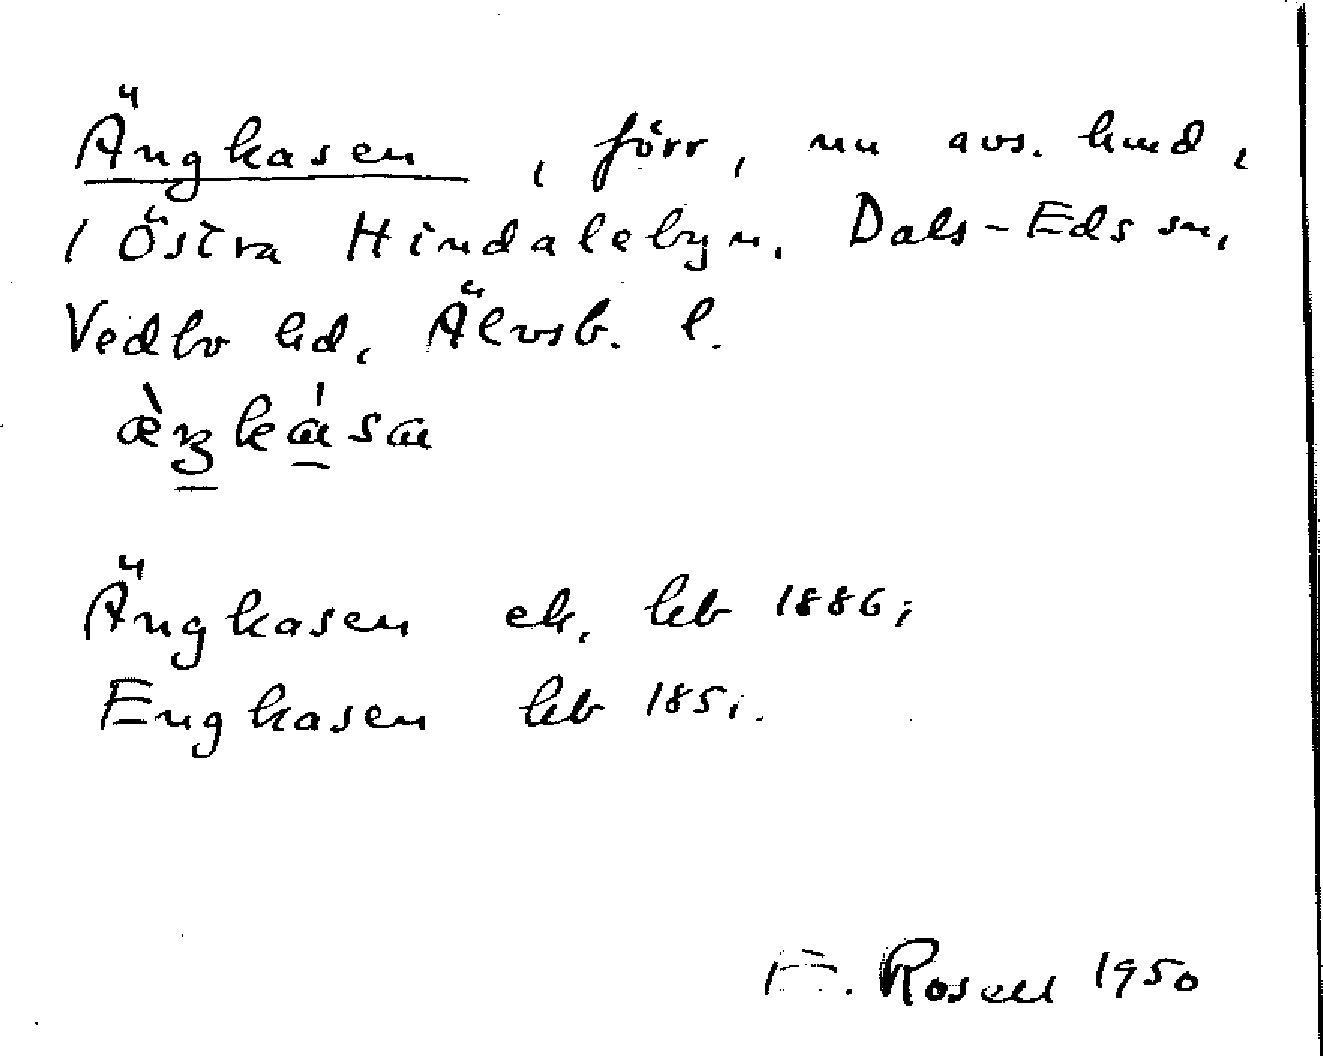 Ängkasen, förr, nu avs. hmd,
i Östra Hindalebyn, Dals-Eds sn,
Vedbo hd, Älvsb. l.
Ängkasen ek, kb 1886;
Engkasen kb 185i.
F. Rosell 1950